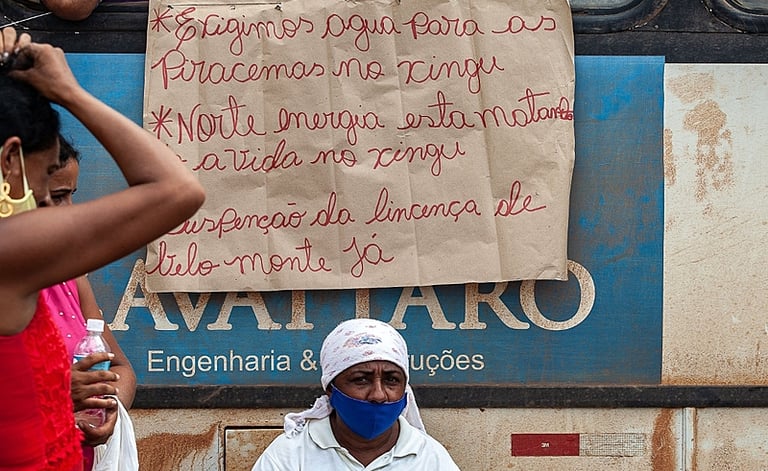 *Exigimos água para as
Piracemas no xingu
*Norte energia esta matando
a vida no xingu
suspenção da lincença de
Belo monte Já
AVATTARO
Engenharia &